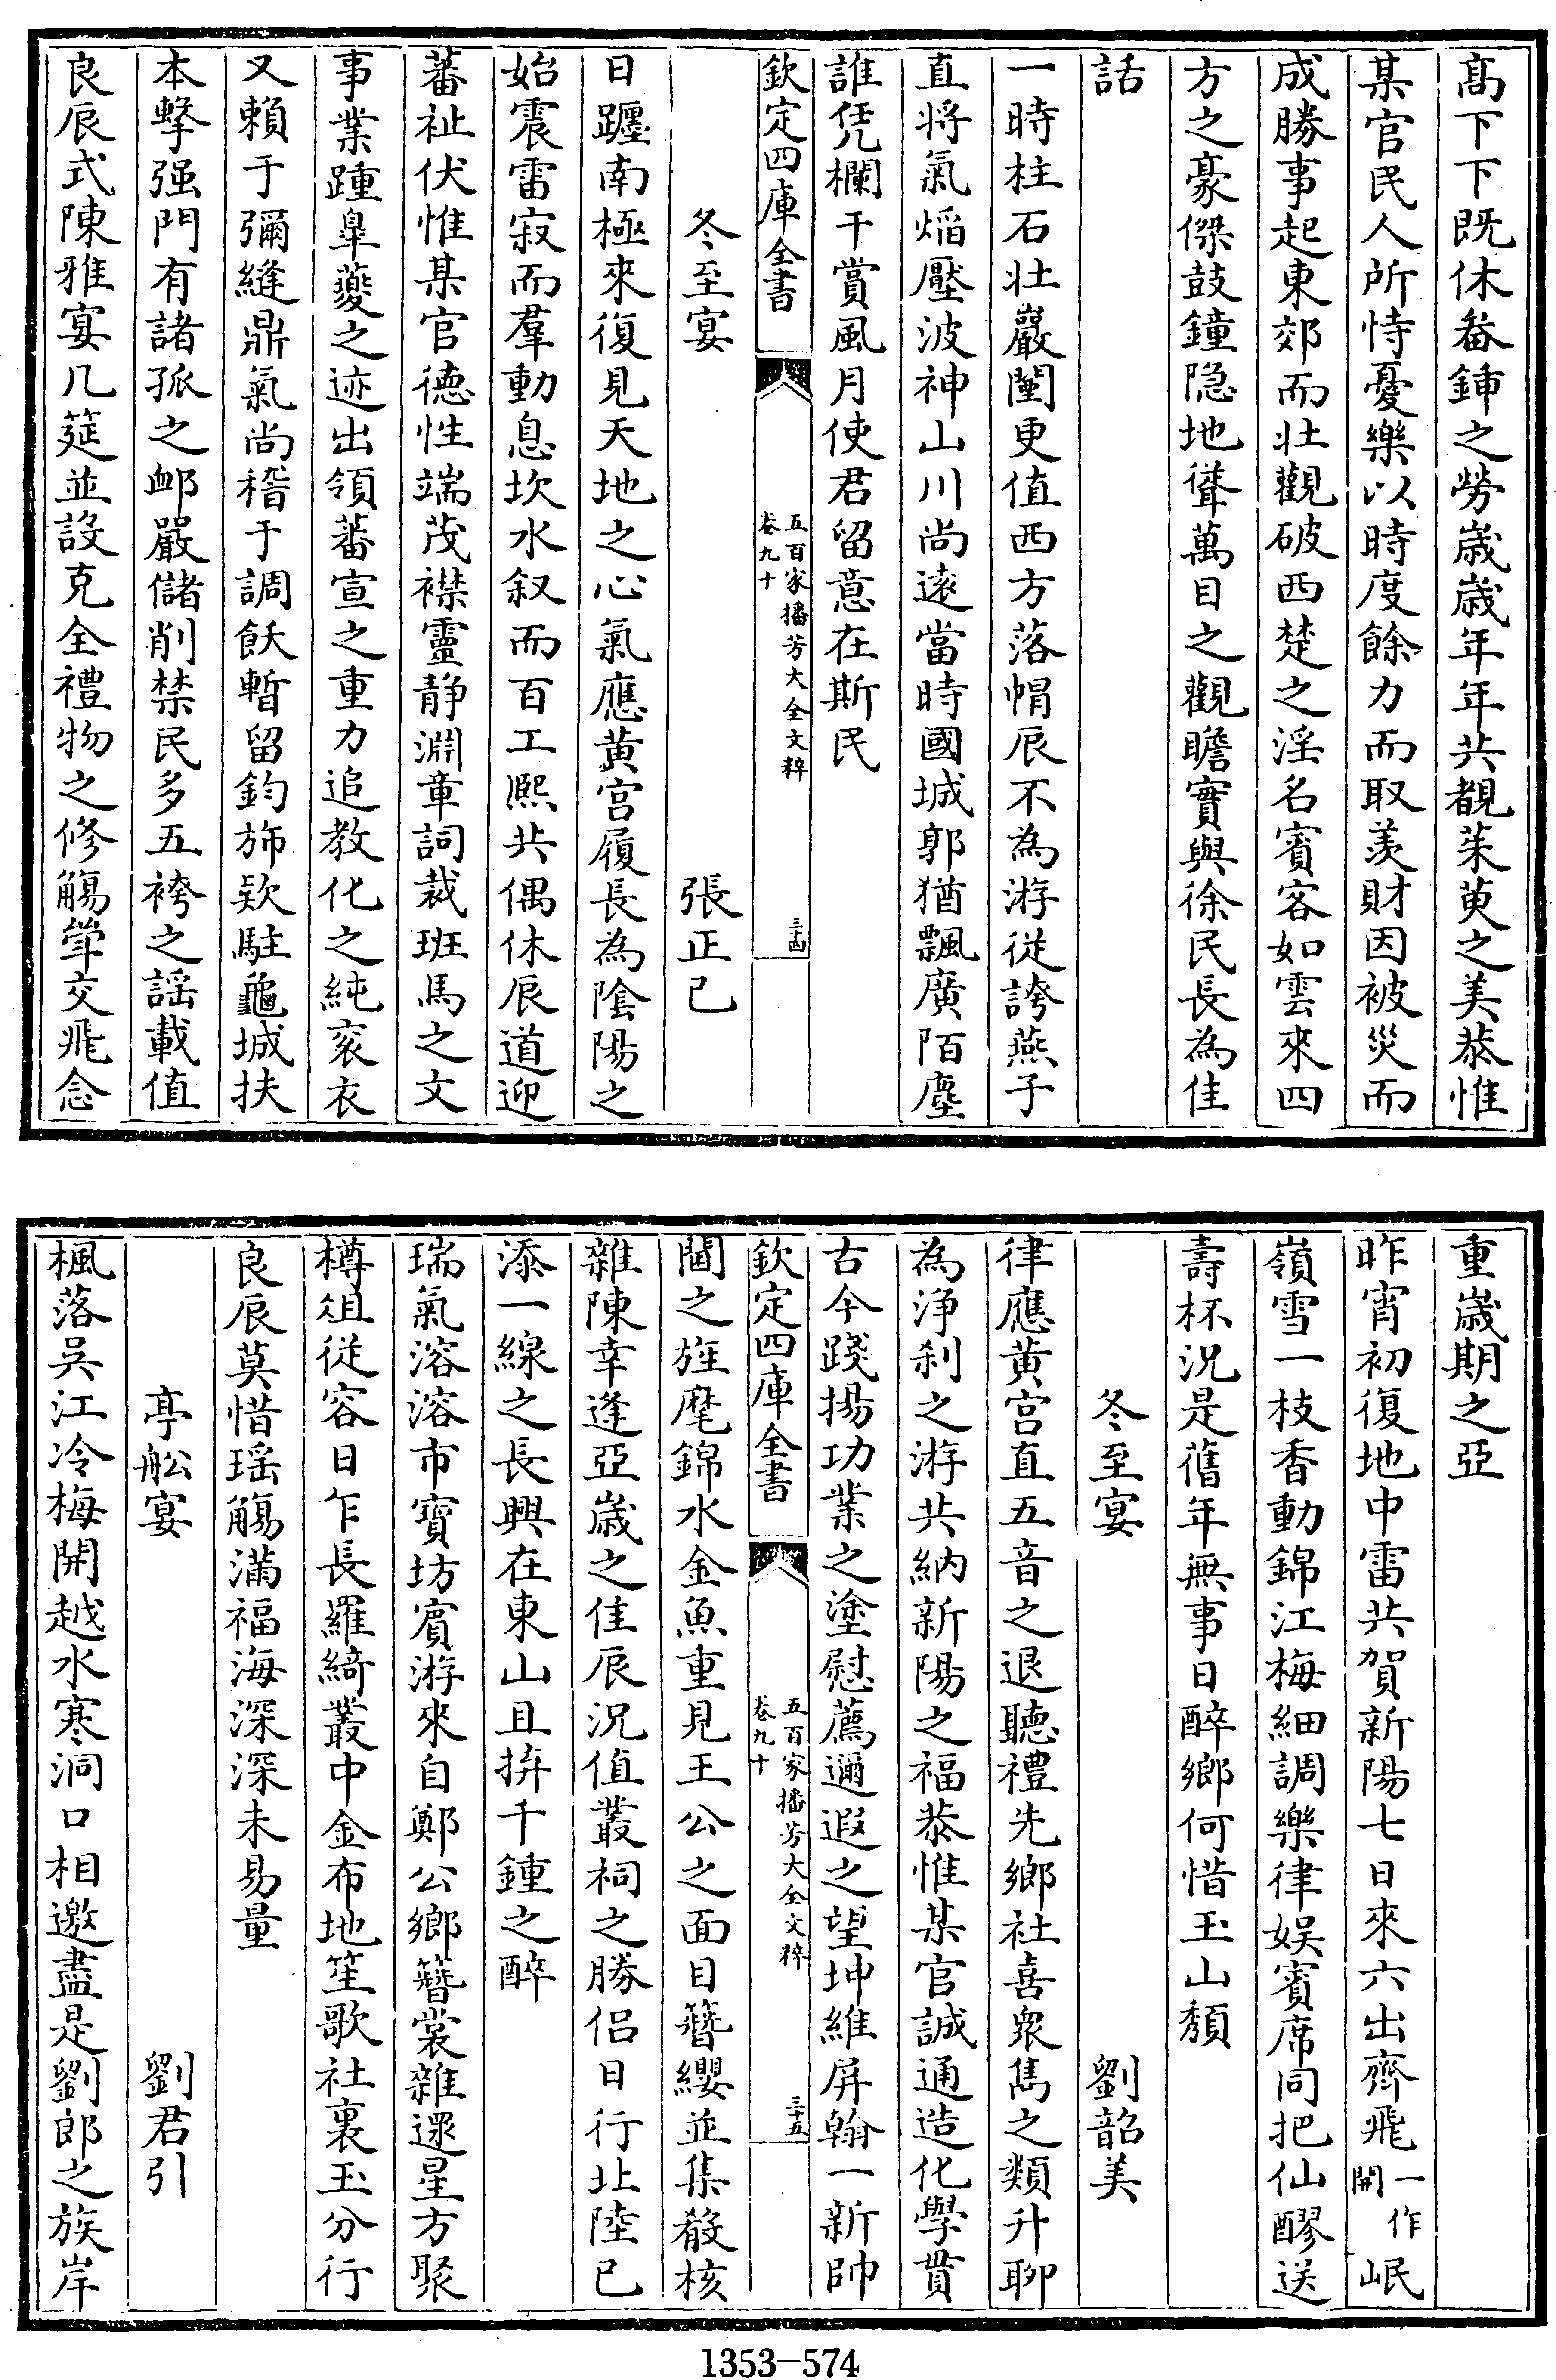 髙下下既休畚鍤之勞歳歳年年共覩茱萸之美恭惟
某官民人所恃憂樂以時度餘力而取羡財因被災而
成勝事起東郊而壮觀破西楚之淫名賓客如雲來四
方之豪傑鼓鐘隠地聳萬目之觀瞻實與徐民長為佳
話
一時柱石壮巖闉更值西方落帽辰不為游從誇燕子
直将氣熖壓波神山川尚逺當時國城郭猶飄廣陌塵
誰凭欄干賞風月使君留意在斯民
欽定四庫全書
五百家播芳大全文粹
卷九十
三十四
冬至宴 張正己
日躔南極來復見天地之心氣應黄宫履長為隂陽之
始震雷寂而羣動息坎水叙而百工熙共偶休辰道迎
蕃祉伏惟某官徳性端茂襟靈静淵章詞裁班馬之文
事業踵臯䕫之迹出領蕃宣之重力追教化之純衮衣
又賴于彌縫鼎氣尚稽于調飫暫留鈞斾欵駐龜城扶
本擊强門有諸孤之䘏嚴儲削禁民多五袴之謡載值
良辰式陳雅宴几筵並設克全禮物之修觴斝交飛念
重歳期之亞
昨宵初復地中雷共賀新陽七日來六出齊飛一作開岷
嶺雪一枝香動錦江梅細調樂律娱賓席同把仙醪送
壽杯況是舊年無事日醉鄉何惜玉山頽
冬至宴 劉韶美
律應黄宫直五音之退聽禮先鄉社喜衆雋之類升聊
為浄刹之游共納新陽之福恭惟某官誠通造化學貫
古今踐揚功業之塗慰薦邇遐之望坤維屏翰一新帥
欽定四庫全書
五百家播芳大全文粹
卷九十
三十五
閫之旌麾錦水金魚重見王公之面目簪纓並集殽核
雜陳幸逢亞歳之佳辰況值叢祠之勝侣日行北陸已
添一線之長興在東山且拚千鍾之醉
瑞氣溶溶市寳坊賔游來自鄭公鄉簪裳雜遝星方聚
樽俎從容日乍長羅綺叢中金布地笙歌社裏玉分行
良辰莫惜瑶觴滿福海深深未易量
亭舩宴 劉君引
楓落吴江冷梅開越水寒洞口相邀盡是劉郎之族岸
1353—574